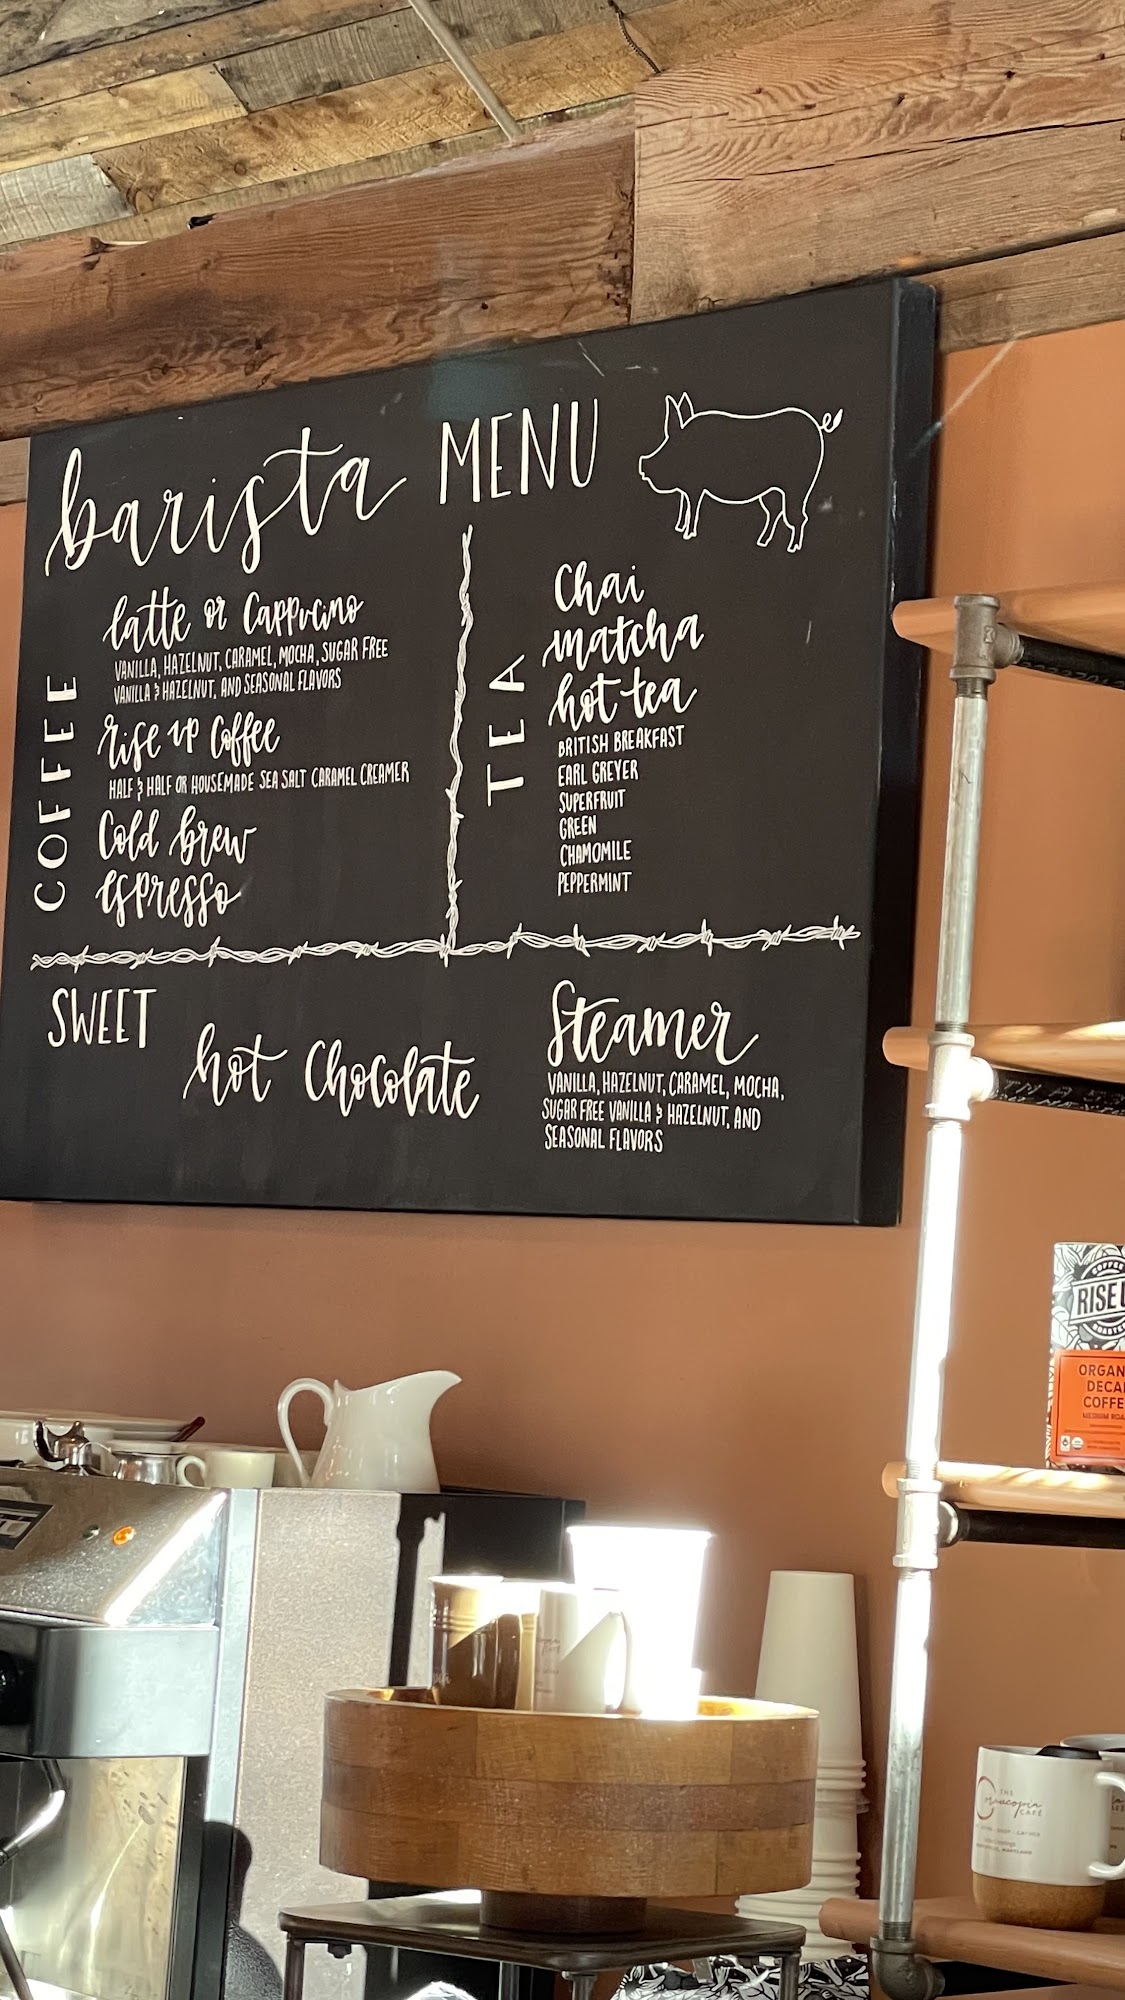 barista MENU
COFFEE
latte or Cappucino
VANILLA, HAZELNUT, CARAMEL, MOCHA, SUGAR FREE
VANILLA & HAZELNUT, AND SEASONAL FLAVORS
rise up Coffee
HALF & HALF OR HOUSEMADE SEA SALT CARAMEL CREAMER
Cold brew
espresso
TEA
Chai
matcha
hot tea
BRITISH BREAKFAST
EARL GREYER
SUPERFRUIT
GREEN
CHAMOMILE
PEPPERMINT
SWEET
hot Chocolate
Steamer
VANILLA, HAZELNUT, CARAMEL, MOCHA,
SUGAR FREE VANILLA & HAZELNUT, AND
SEASONAL FLAVORS
COFFEE
RISE U
ROASTE
ORGAN
DECA
COFFE
MEDIUM ROA
THE
Cornucopia
CAFÉ